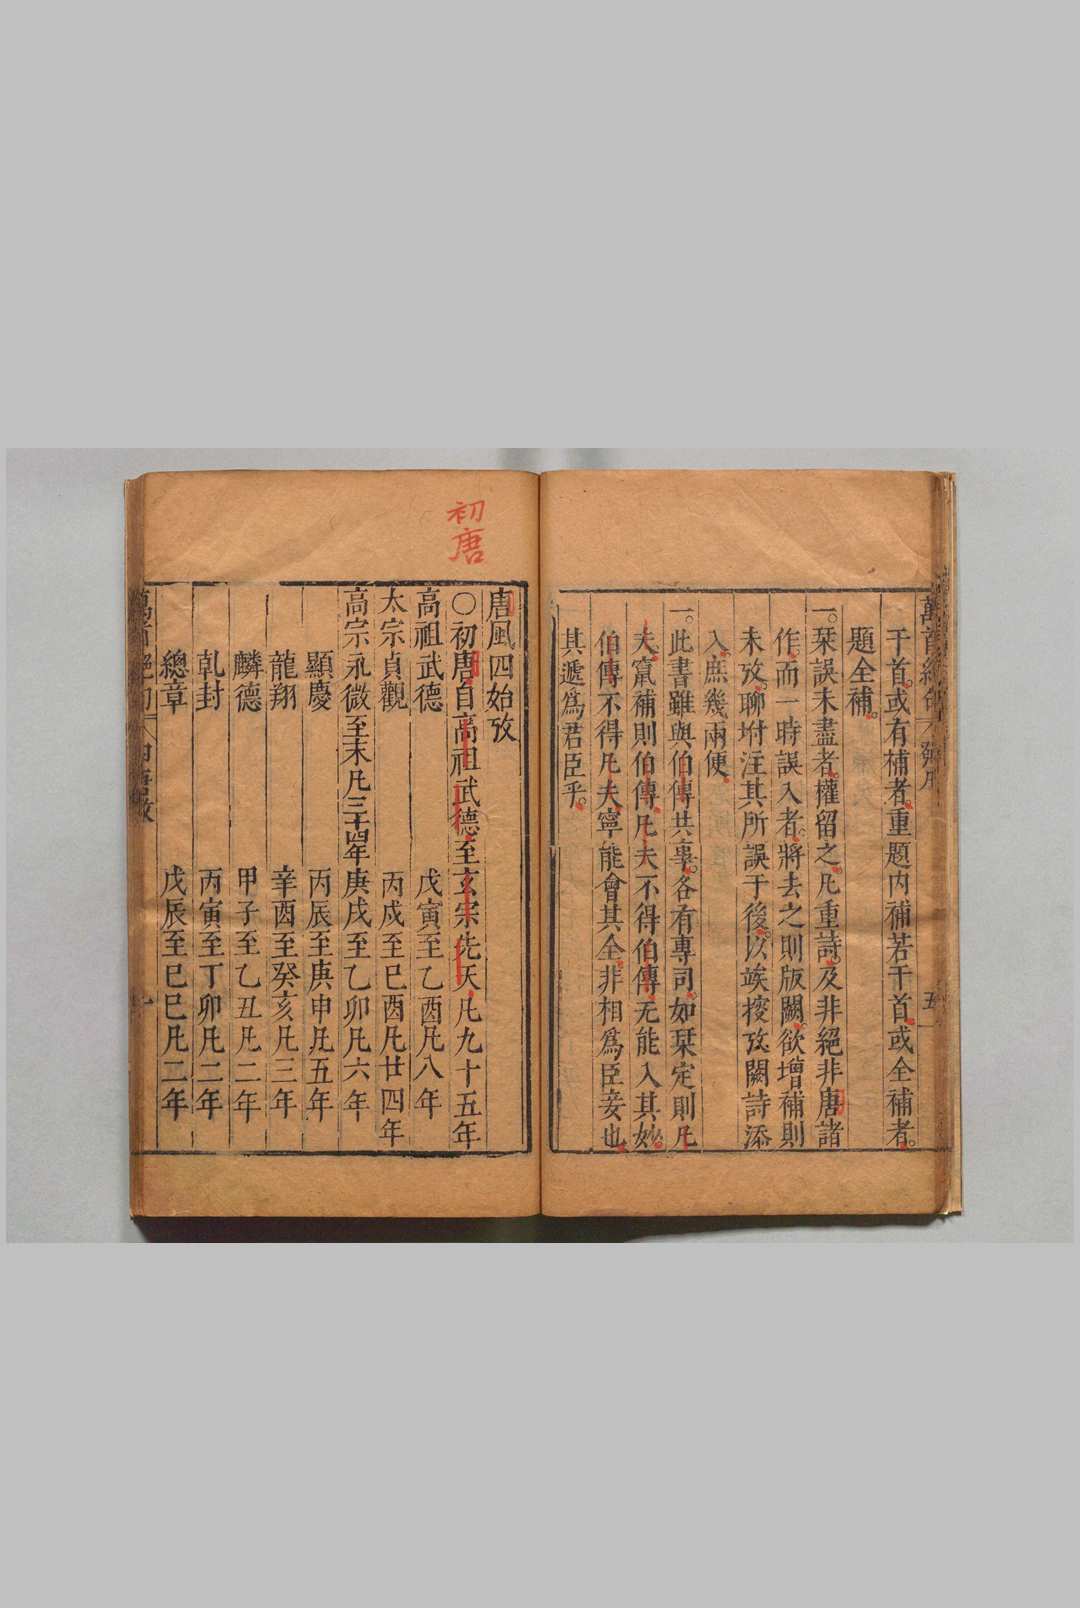 干首。或有補者。重題內補若干首。或全補者。
題全補。
一。栞誤未盡者。權留之。凡重詩。及非絕非唐諸
作。而一時誤入者。將去之則版闕。欲增補則
未攷。聊坿注其所誤于後。以竢挍攷闕詩添
入。庶幾兩便。
一。此書雖與伯傳共事。各有專司。如栞定則凡
夫。竄補則伯傳。凡夫不得伯傳。无能入其妙。
伯傳不得凡夫。寧能會其全。非相爲臣妾也。
其遞爲君臣乎。
初唐
唐風四始攷
○初唐自高祖武德至玄宗先天凡九十五年
高祖武德 戊寅至乙酉凡八年
太宗貞觀 丙戌至己酉凡廿四年
高宗永徽至末凡三十四年 庚戌至乙卯凡六年
顯慶 丙辰至庚申凡五年
龍翔 辛酉至癸亥凡三年
麟德 甲子至乙丑凡二年
乹封 丙寅至丁卯凡二年
總章 戊辰至己巳凡二年